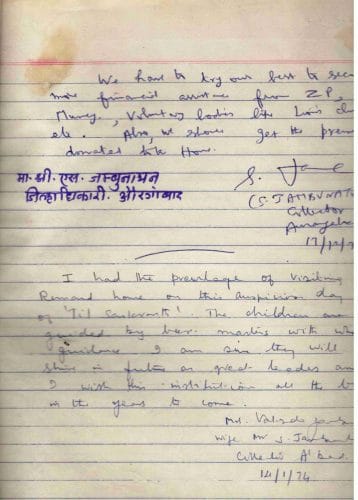 We have to try our best to secu
more financial assistance from Z.P,
Money, Voluntary bodies like Lion's clu
etc. Also, we should get the prem
donated to the Home.
मा. श्री. एस. जम्बुनाथन
जिल्हाधिकारी. औरंगाबाद
(S. JAMBUNAT
Collector
Aurangaba
I had the previlage of visiting
Remand home on this auspicious day
of 'Til Sankranti'. The children are
guided by her. with wh
guidance I am sure they will
shine in future as great leaders an
I wish this institution all the b
in the years to come.
Mrs.
wife Mr S. Jambunat
Collector A'bad.
14/1/74